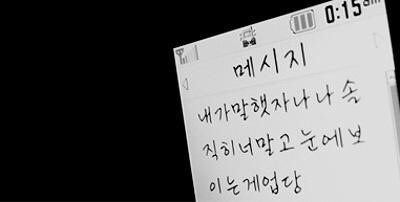 0:15am
메시지
내가말햇자나나 솔
직히너말고 눈에보
이는게업당